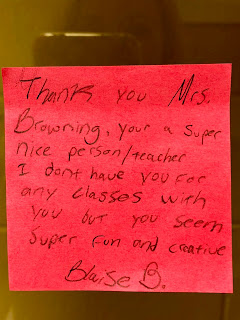 Thank you Mrs.
Browning, your a super
nice person/teacher
I dont have you for
any classes with
you but you seem
super fun and creative
Blaise B.